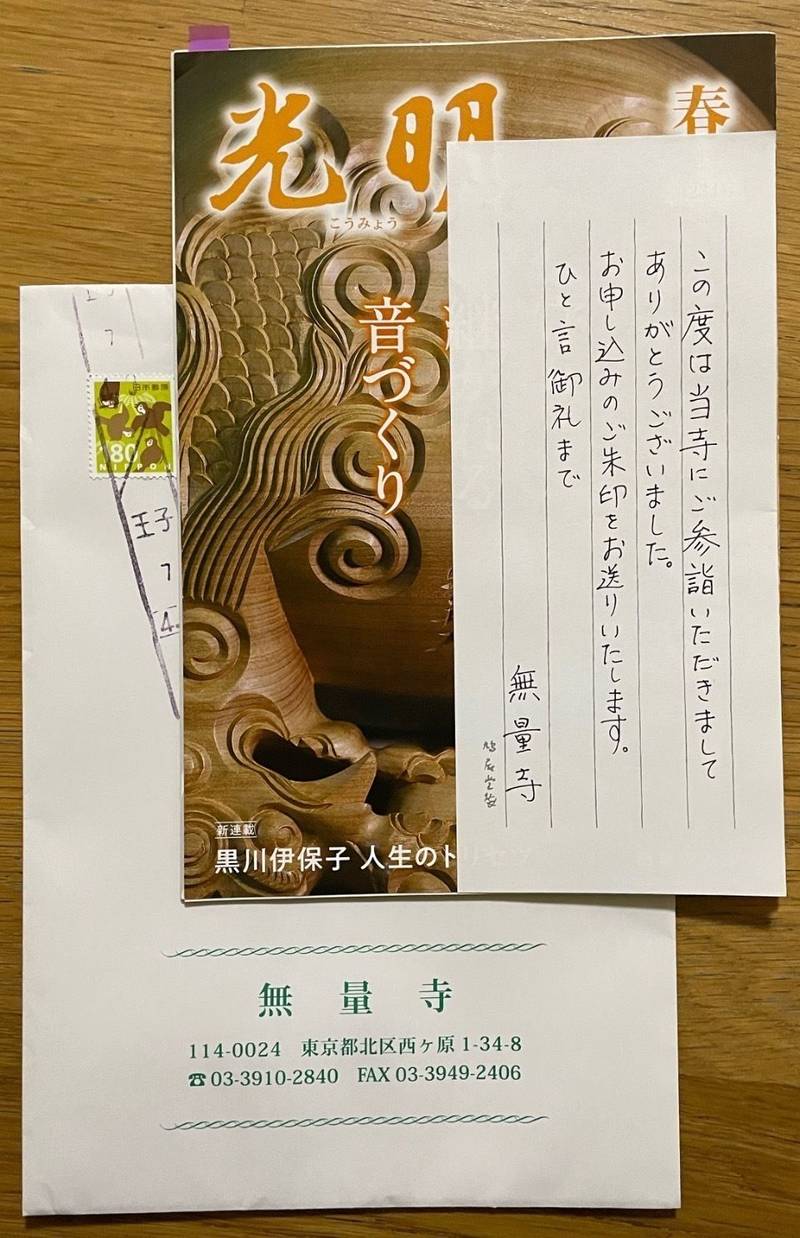 光明
こうみょう
春
音づくり
新連載
黒川伊保子 人生のト
この度は当寺にご参詣いただきまして
ありがとうございました。
お申し込みのご朱印をお送りいたします。
ひと言御礼まで
無量寺
日本郵便
80
NIPPON
王子
7
4.
無量寺
114-0024 東京都北区西ヶ原1-34-8
☎03-3910-2840 FAX 03-3949-2406